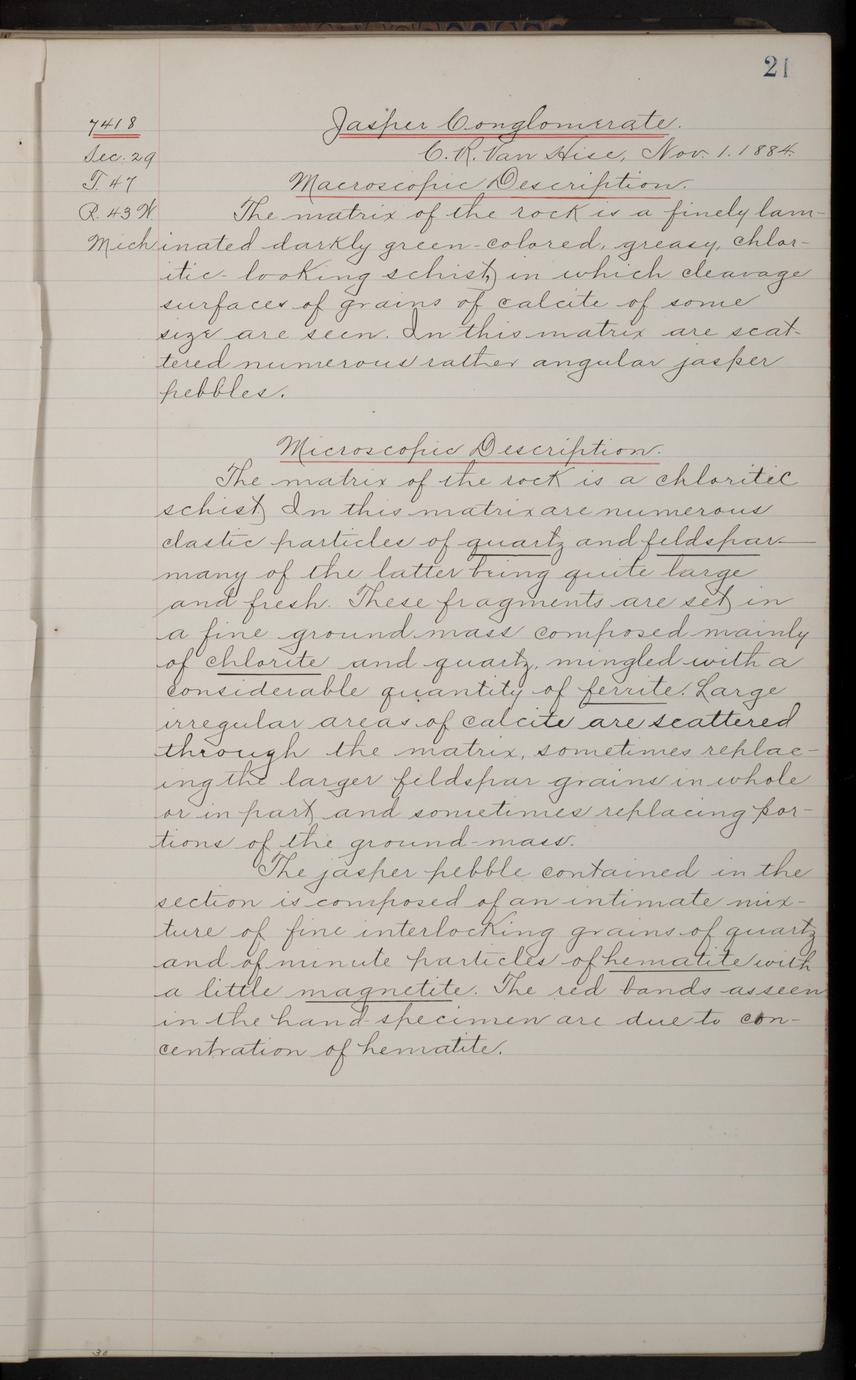 21
7418
Jasper Conglomerate.
Sec. 29
C. R. Van Hise, Nov. 1. 1884.
T. 47
Macroscopic Description.
R. 43 W
The matrix of the rock is a finely lam-
Mich
inated darkly green-colored, greasy, chlor-
itic-looking schist, in which cleavage
surfaces of grains of calcite of some
size are seen. In this matrix are scat-
tered numerous rather angular jasper
pebbles.
Microscopic Description.
The matrix of the rock is a chloritic
schist. In this matrix are numerous
clastic particles of quartz and feldspar—
many of the latter being quite large
and fresh. These fragments are set in
a fine ground mass composed mainly
of chlorite and quartz, mingled with a
considerable quantity of ferrite. Large
irregular areas of calcite are scattered
through the matrix, sometimes replac-
ing the larger feldspar grains in whole
or in part, and sometimes replacing por-
tions of the ground-mass.
The jasper pebble contained in the
section is composed of an intimate mix-
ture of fine interlocking grains of quartz
and of minute particles of hematite with
a little magnetite. The red bands as seen
in the hand-specimen are due to con-
centration of hematite.